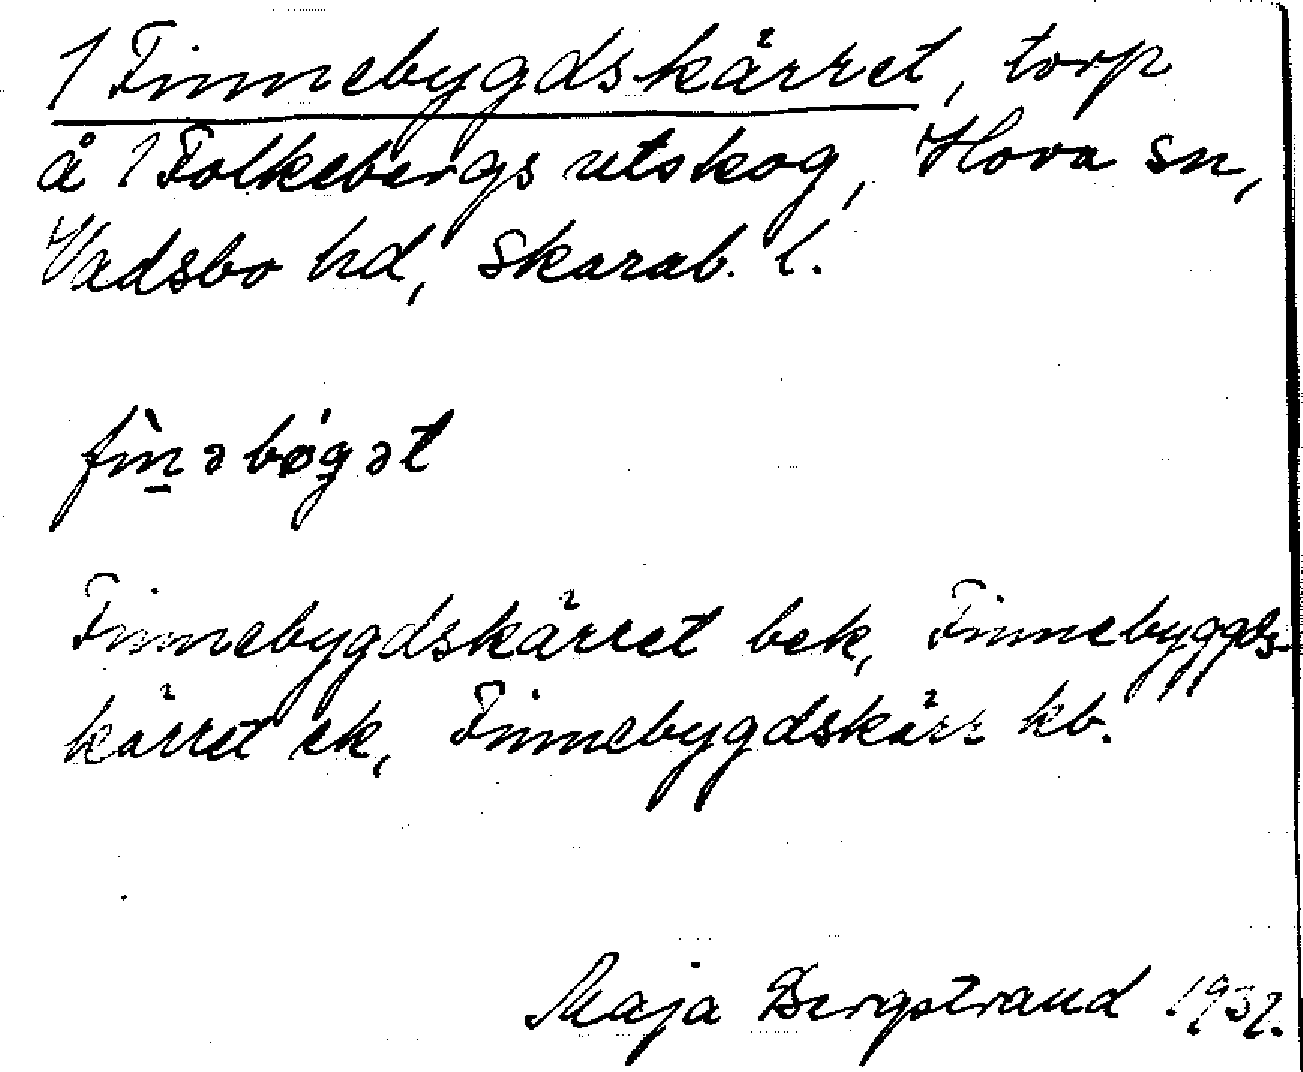 1 Finnebygdskärret, torp
å 1 Folkebergs utskog, Hova sn,
Vadsbo hd, Skarab. l.
fìn̲əbǿg̲ət
Finnebygdskärret bek, Finnebyggds-
kärret ek, Finnebygdskärr kb.
Maja Bergstrand 1937.